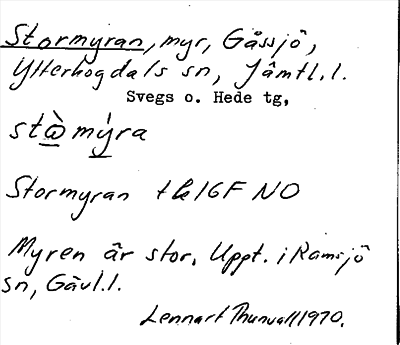 Stormyran, myr, Gåssjö,
Ytterhogdals sn, Jämtl.l.
Svegs o. Hede tg,
stọ̀mýra
Stormyran tk 16F NO
Myren är stor. Uppt. i Ramsjö
sn, Gävl.l.
Lennart Thunvall 1970.